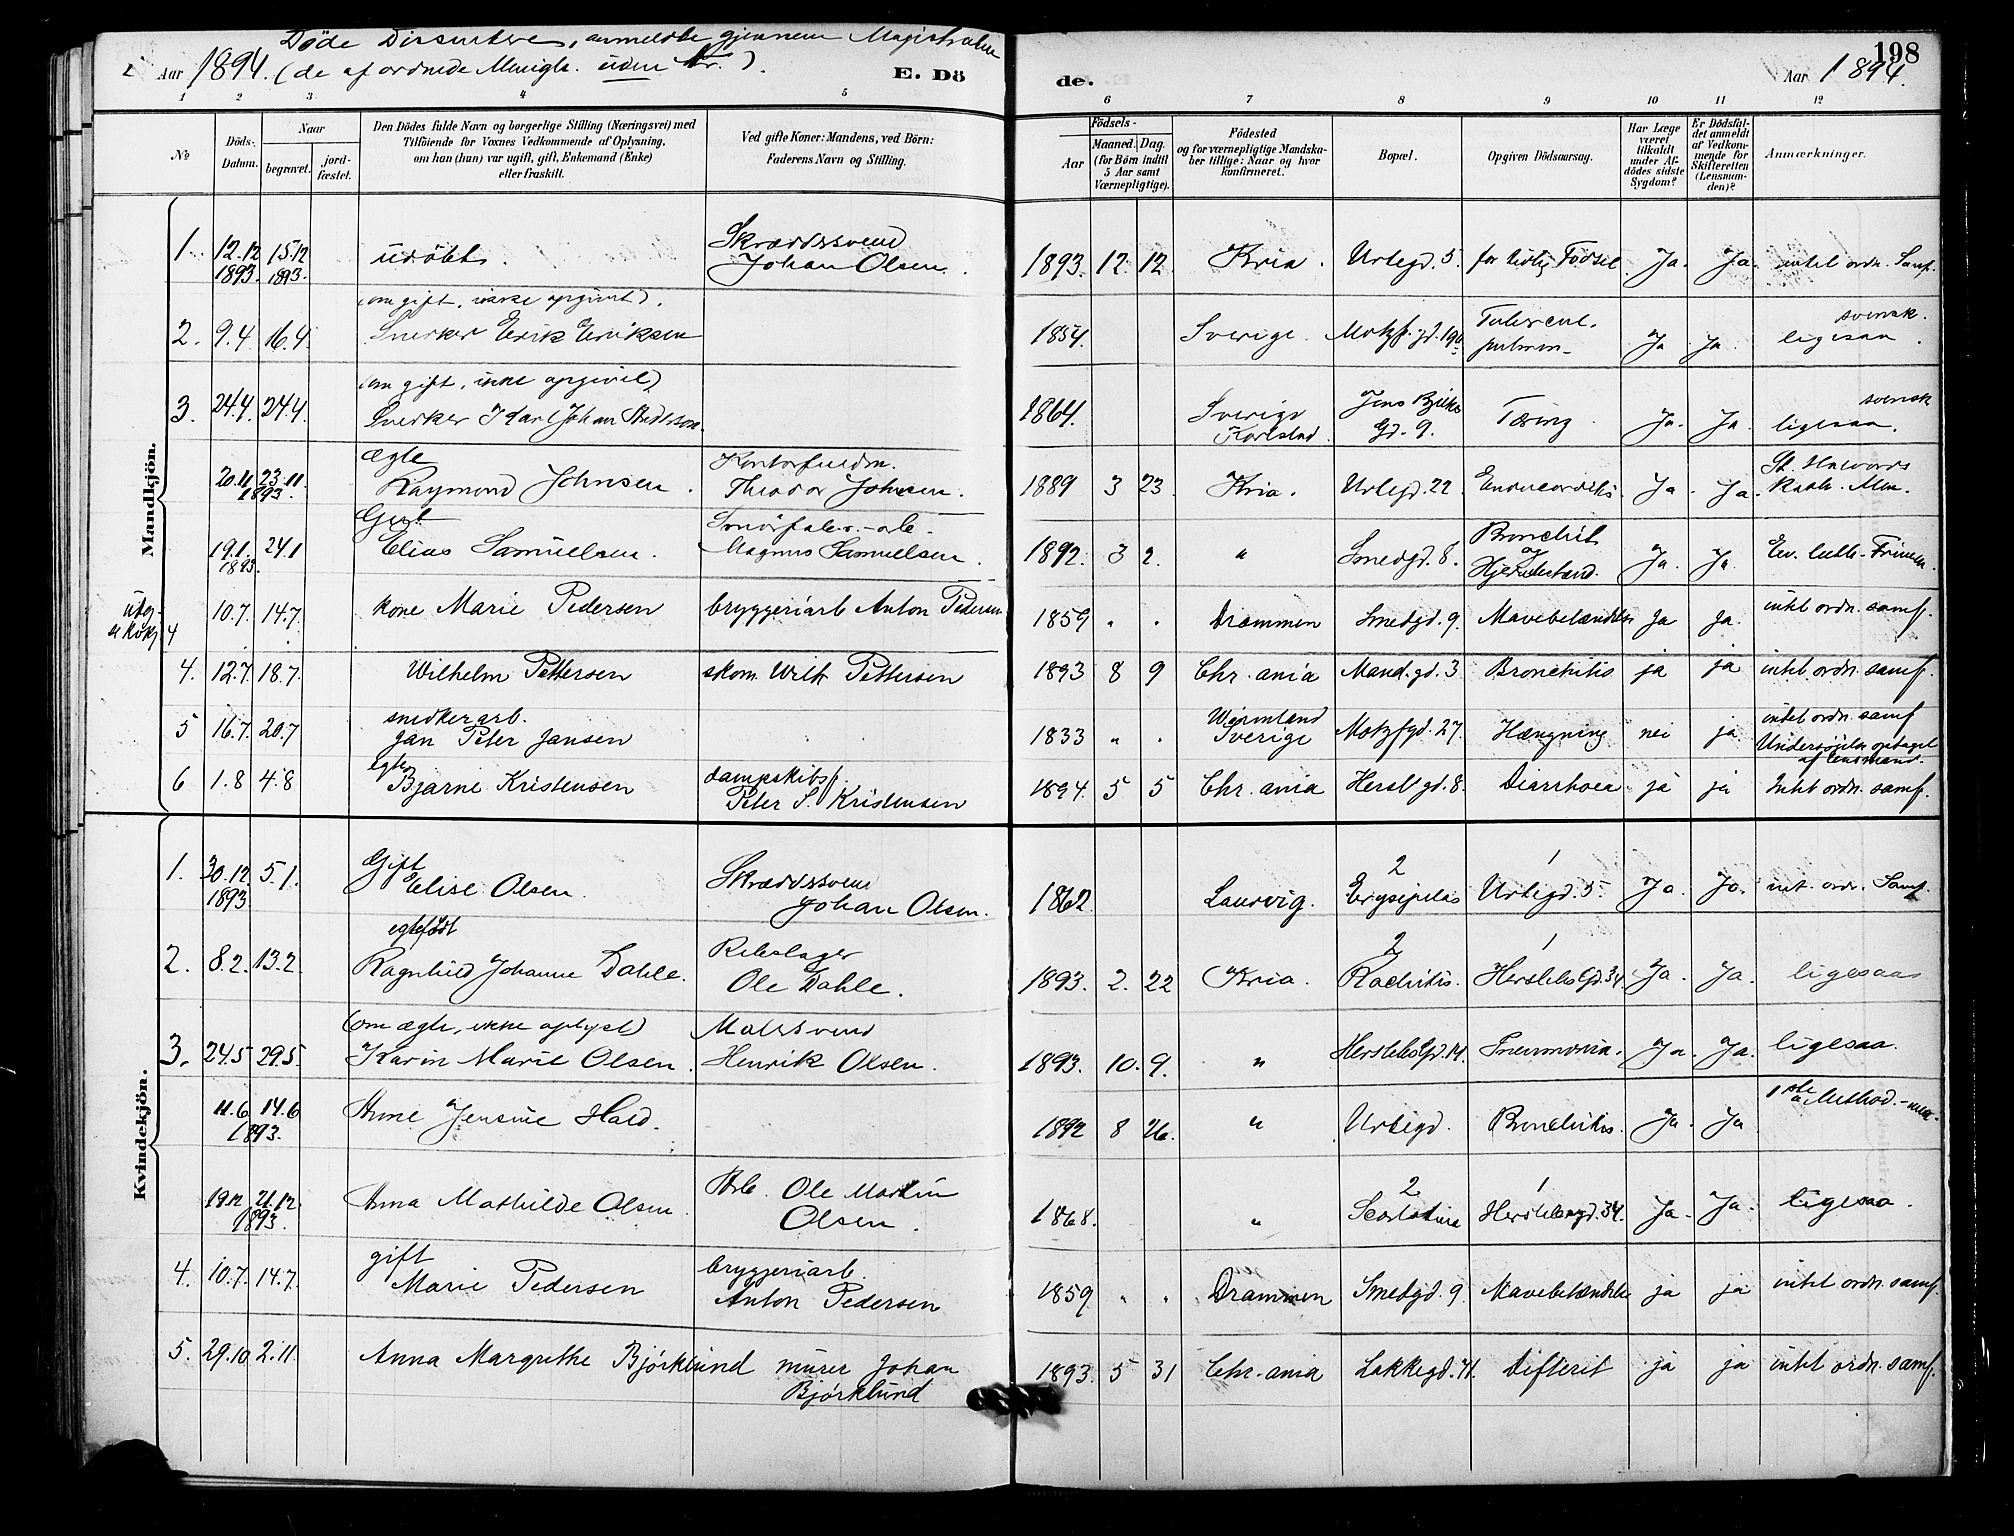 Døde Dissentere, anmeldte gjennem Magistraten
Aar 1894. (de af ordnede Menigh. uden Nr.).
E. Dö
de.
198
Aar 1894.
1 2 3 4 5
6 7 8 9 10 11 12
No
Döds-Datum.
Naar
begravet.
jord-fæstet.
Den Dödes fulde Navn og borgerlige Stilling (Næringsvei) med
Tilföiende for Voxnes Vedkommende af Oplysning,
om han (hun) var ugift, gift, Enkemand (Enke)
eller fraskilt.
Ved gifte Koner: Mandens, ved Börn:
Faderens Navn og Stilling.
Födsels-
Aar
Maaned. Dag.
(for Börn indtil
5 Aar samt
Værnepligtige).
Födested
og for værnepligtige Mandska-
ber tillige: Naar og hvor
konfirmeret.
Bopæl.
Opgiven Dödsaarsag.
Har Læge
været
tilkaldt
under Af-
dödes sidste
Sygdom?
Er Dödsfal-
det anmeldt
af Vedkom-
mende for
Skifteretten
(Lensman-
den)?
Anmærkninger.
Mandkjön.
1. 12.12 1893. 15.12 1893. udöbt. Skræddersvend Johan Olsen. 1893. 12. 12. Kria. Urtegd. 5. for tidlig Födsel Ja. Ja. intet ordn. Samf.
(om gift, ikke opgivet).
2. 9.4. 16.4. Snerker Erik Eriksen 1854. Sverige. Motzf. gd. 19b Tubercul. pulmon- Ja Ja. svensk. ligesaa.
(om gift, ikke opgivet)
3. 24.4. 24.4. Snerker Karl Johan Andersson. 1864. Sverige Karlstad. Jens Bjelkes Gd. 9. Tæring. Ja. Ja. svensk ligesaa.
20.11 23.11 1893. Ægte Raymond Johnsen. Kontorfuldm. Theodor Johnsen. 1889 3 23. Kria. Urtegd. 22. Endocarditis Ja. Ja. St. Halvards Kath. Men.
19.1. 1893. 24.1 Gust Elias Samuelsen. Magnus Samuelsen. 1892. 3 2. " Smedgd. 8. Bronchit og Ja. Ja. Ev. luth. Frimen.
4 10.7. 14.7. kone Marie Pedersen bryggeriarb Anton Pedersen 1859 " . Drammen Smedgd. 9. Mavebetændelse Ja Ja. intet ordn. samf.
4. 12.7. 18.7. Wilhelm Pettersen skom. Wilh Pettersen 1893 8 9 Chr.ania Mand.gd. 3 Bronchitis ja ja intet ordn. samf.
5 16.7. 20.7 snedkerarb. Jan Peter Jansen 1833 " . Wärmland Sverige Motzfgd. 27. Hængning nei ja intet ordn. samf
Undersögelse optaget af lensmand.
6 1.8 4.8 egte Bjarne Kristensen dampskibsf. Peter S. Kristensen 1894. 5 5 Chr.ania Hersl gd. 8. Diarrhoea ja ja Intet ordn. samf.
Kvindekjön.
1. 30.12 1893. 5.1. Gift Elise Olsen. Skræddersvend Johan Olsen. 1862. Laurvig. 2 Erysipelas 1 Urtegd. 5. Ja. Ja. int. ordn. Samf.
2. 8.2. 13.2. egtefödt Ragnhild Johanne Dahle. Rebslager Ole Dahle. 1893. 2. 22 Kria. 2 Rachitis. 1 Herslebs Gd. 34 Ja. Ja. ligesaa
(om ægte, ikke oplyst)
3. 24.5. 29.5. Karin Marie Olsen. Malersvend Henrik Olsen. 1893. 10. 9. " Herslebs Gd. 14. Pneumonia. Ja. Ja. ligesaa.
11.6 14.6 1893. Anne Jensine Hald. 1892 8 26. " Urtegd. Bronchitis. Ja. Ja 1ste Method.-men.
19.12 21.12. 1893. Anna Mathilde Olsen. Arb. Ole Martin Olsen. 1868. " 2 Scarlatina 1 Herslebsgd. 34. Ja. Ja. ligesaa.
4. 10.7. 14.7. gift Marie Pedersen bryggeriarb. Anton Pedersen 1859 " . Drammen Smedgd. 9. Mavebetændelse ja ja intet ordn. samf.
5. 29.10. 2.11. Anna Margrethe Björklund murer Johan Björklund 1893. 5 31 Chr.ania Lakkegd. 71. Difterit ja ja intet ordn. samf.